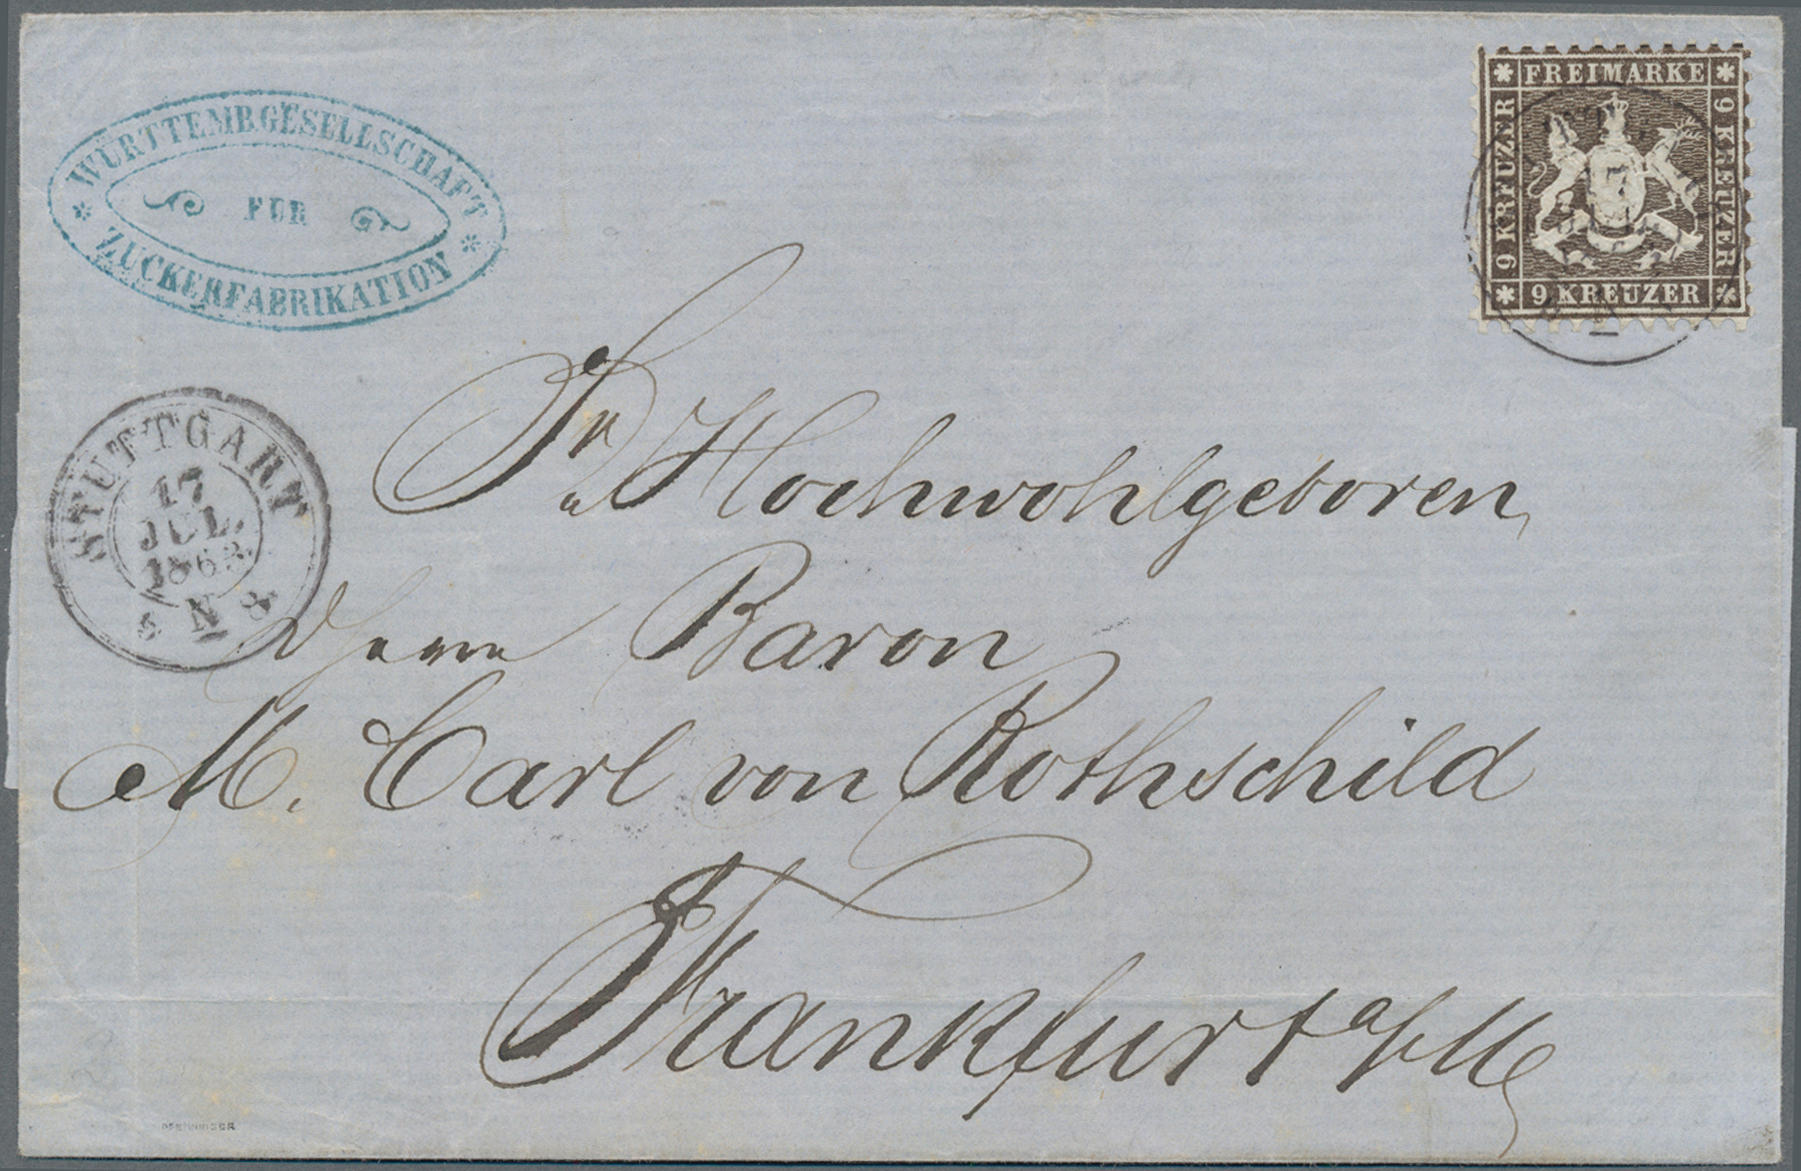 WÜRTTEMB.GESELLSCHAFT
FÜR
ZUCKERFABRIKATION
FREIMARKE
9 KREUZER
9 KREUZER
9 KREUZER
STUTTGART
17
JUL.
1863
N
Sr Hochwohlgeboren,
Herrn Baron
M. Carl von Rothschild
Frankfurt a/M
PFENNINGER